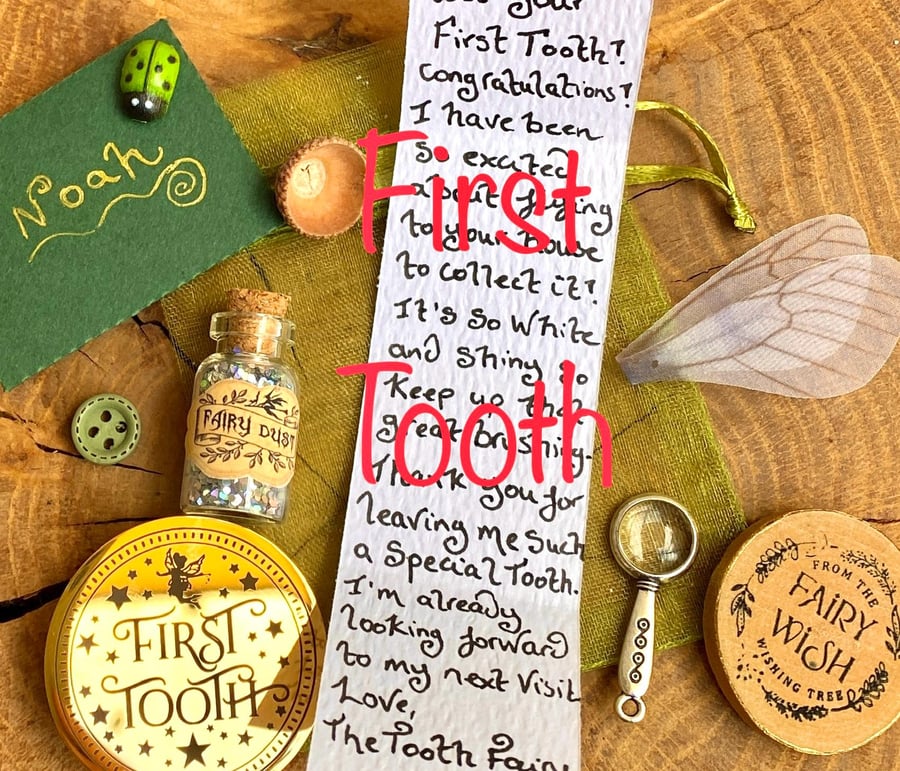 your
First Tooth?
Congratulations!
I have been
So excited
about flying
to your house
to collect it!
It's so White
and shiny so
Keep up that
great brushing.
Thank you for
leaving me such
a special Tooth.
I'm already
looking forward
to my next visit
Love,
The Tooth Fairy
First
Tooth
Noah
FAIRY DUST
FIRST
TOOTH
FROM THE
FAIRY
WISH
WISHING TREE